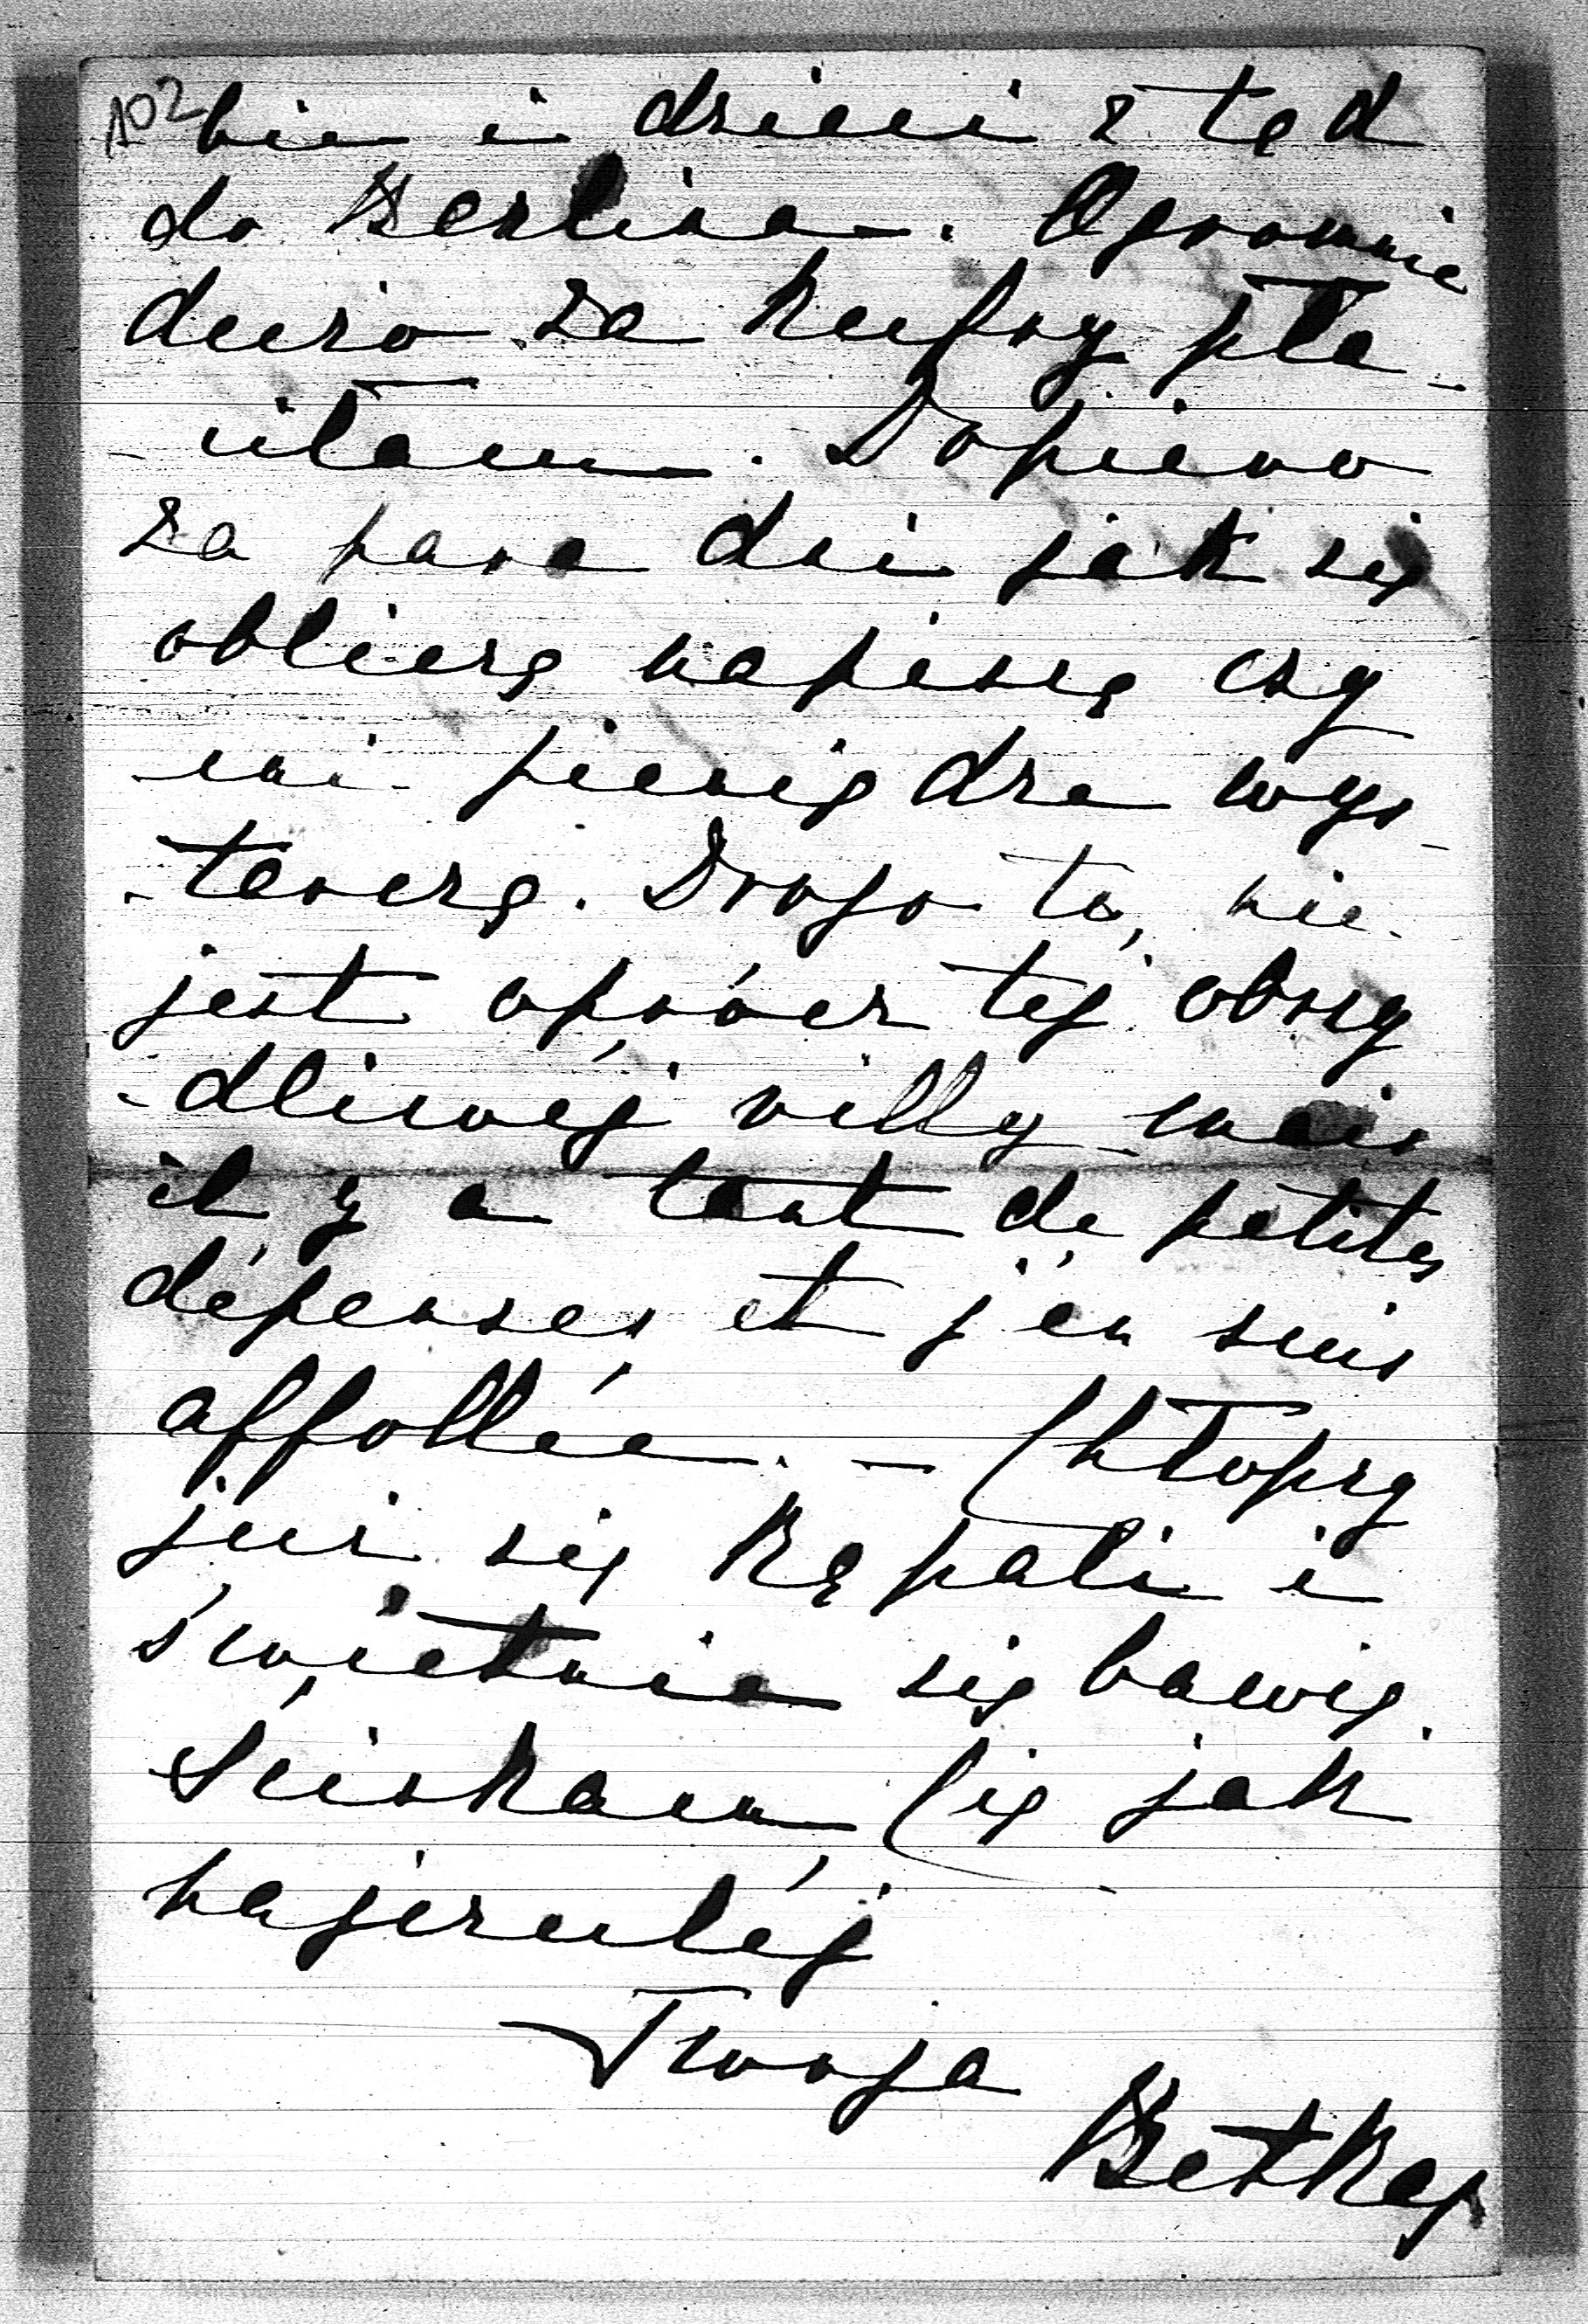 102
bie i dzieci z tąd
do Berlina. Ogromnie
dużo za kufry pła-
- ciłam. Dopiero
za parę dni jak się
obliczę napiszę czy
mi pieniędze wys-
- tarczą. Drogo tu nie
jest oprócz tej obrzy
- dliwéj villy mais
il y a tant de petites
dépenses et j'en suis
affollée. – Chłopcy
już się kąpali i
świetnie się bawią.
Ściskam Cię jak
najczuléj
Twoja
Betka